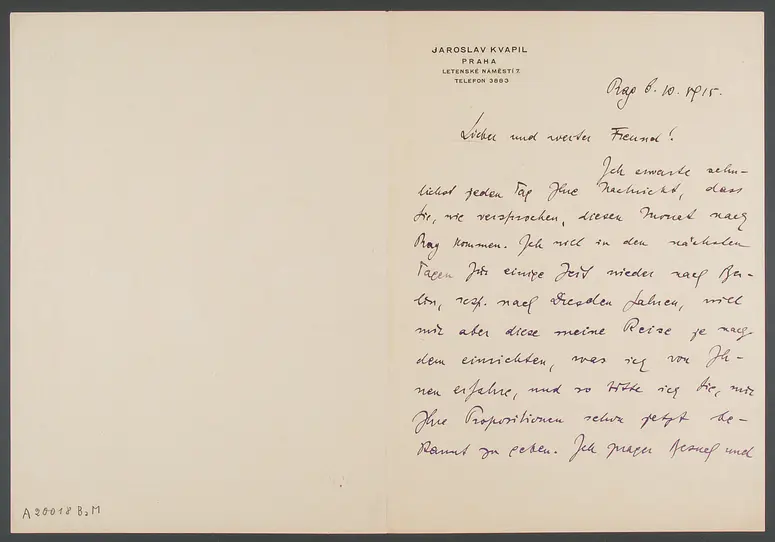 JAROSLAV KVAPIL
PRAHA
LETENSKÉ NÁMĚSTÍ 7.
TELEFON 3883
Prag 6. 10. 1915.
Lieber und werter Freund!
Ich erwarte sehn-
lichst jeden Tag Ihre Nachricht, dass
Sie, wie versprochen, diesen Monat nach
Prag kommen. Ich will in den nächsten
Tagen für einige Zeit wieder nach Ber-
lin, resp. nach Dresden fahren, will
mir aber diese meine Reise je nach-
dem einrichten, was ich von Ih-
nen erfahre, und so bitte ich Sie, mir
Ihre Propositionen schon jetzt be-
kannt zu geben. Ich Besuch und
A 20018 B2M